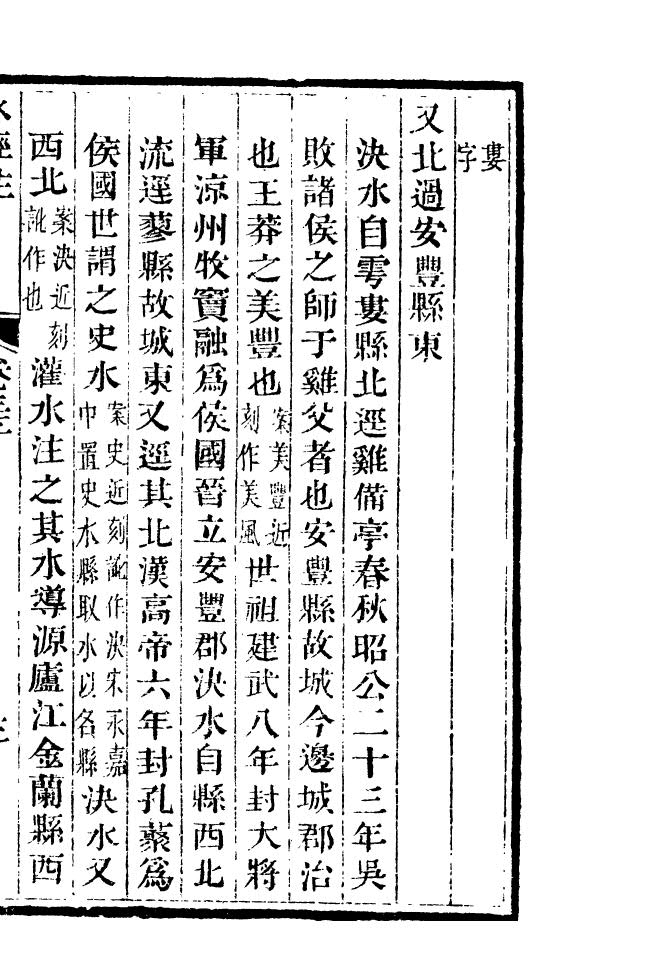 婁
字
又北過安豐縣東
決水自雩婁縣北逕雞備亭春秋昭公二十三年吳
敗諸侯之師于雞父者也安豐縣故城今邊城郡治
也王莽之美豐也案美豐近刻作美風世祖建武八年封大將
軍涼州牧竇融爲侯國晉立安豐郡決水自縣西北
流逕蓼縣故城東又逕其北漢高帝六年封孔藂爲
侯國世謂之史水案史近刻訛作決宋永嘉中置史水縣取水以名縣決水又
西北案決近刻訛作也灌水注之其水導源廬江金蘭縣西
水經注